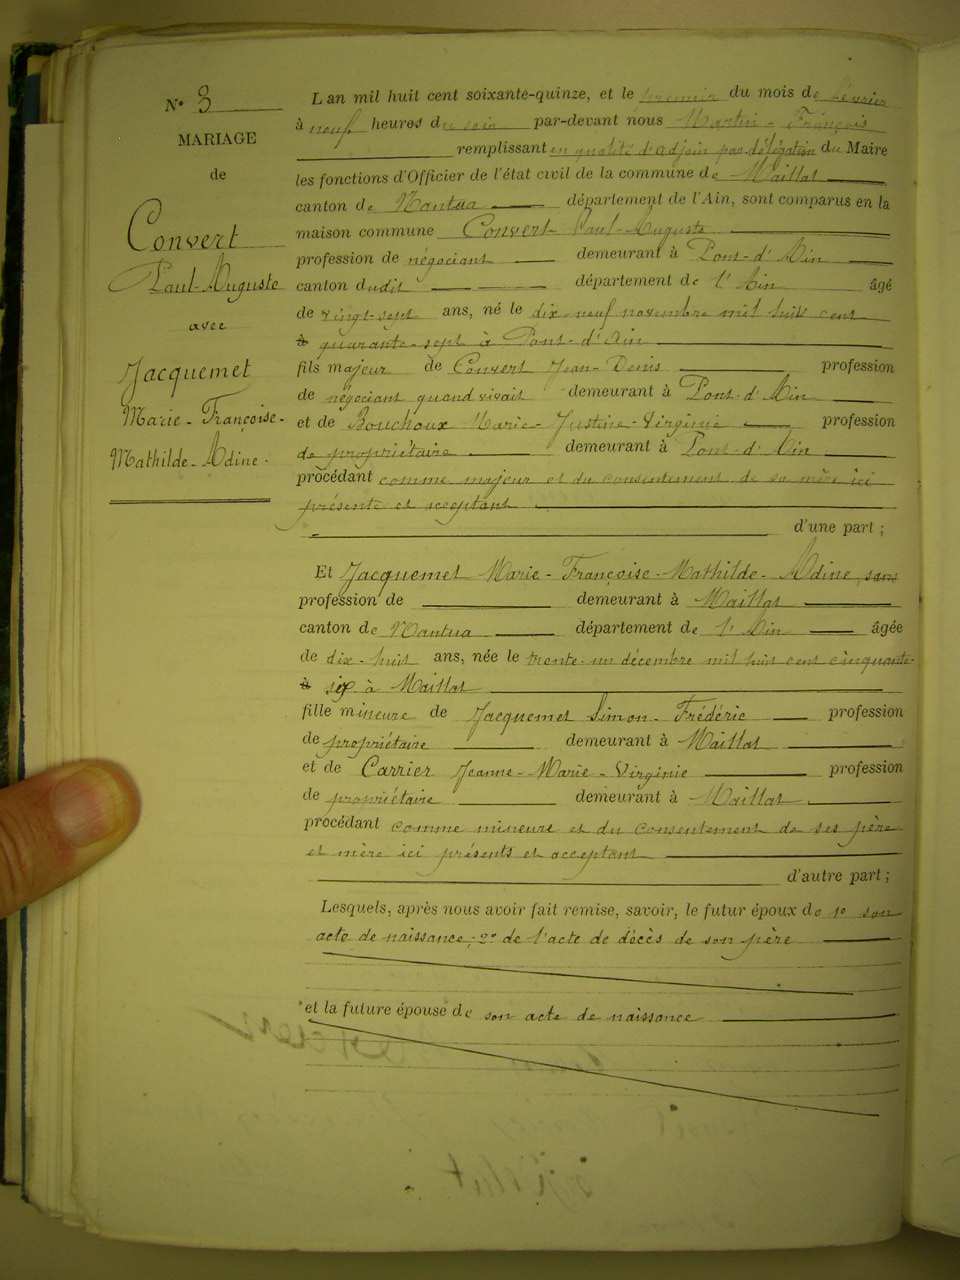 N° 3
MARIAGE
de
Convert
Paul-Auguste
avec
Jacquemet
Marie-Françoise-
Mathilde-Adine.
L an mil huit cent soixante-quinze, et le premier du mois de février
à neuf heures du soir par-devant nous Martin-François
remplissant en qualité d'adjoin par délégation du Maire
les fonctions d'Officier de l'état civil de la commune de Maillat
canton de Nantua département de l'Ain, sont comparus en la
maison commune Convert Paul-Auguste
profession de négociant demeurant à Pont-d'Ain
canton dudit département de l'Ain âgé
de vingt-sept ans, né le dix-neuf novembre mil huit cent
à quarante-sept à Pont-d'Ain
fils majeur de Convert Jean-Denis profession
de négociant quand vivait demeurant à Pont-d'Ain
et de Bouchoux Marie-Justine-Virginie profession
de propriétaire demeurant à Pont-d'Ain
procédant comme majeur et du consentement de sa mère ici
présente et acceptant
d'une part ;
Et Jacquemet Marie-Françoise-Mathilde-Adine, sans
profession de demeurant à Maillat
canton de Nantua département de l'Ain âgée
de dix-huit ans, née le trente-un décembre mil huit cent cinquante-
à six à Maillat
fille mineure de Jacquemet Simon-Frédéric profession
de propriétaire demeurant à Maillat
et de Carrier Jeanne-Marie-Virginie profession
de propriétaire demeurant à Maillat
procédant comme mineure et du consentement de ses père
et mère ici présents et acceptant
d'autre part ;
Lesquels, après nous avoir fait remise, savoir, le futur époux de 1° son
acte de naissance; 2° de l'acte de décès de son père
et la future épouse de son acte de naissance